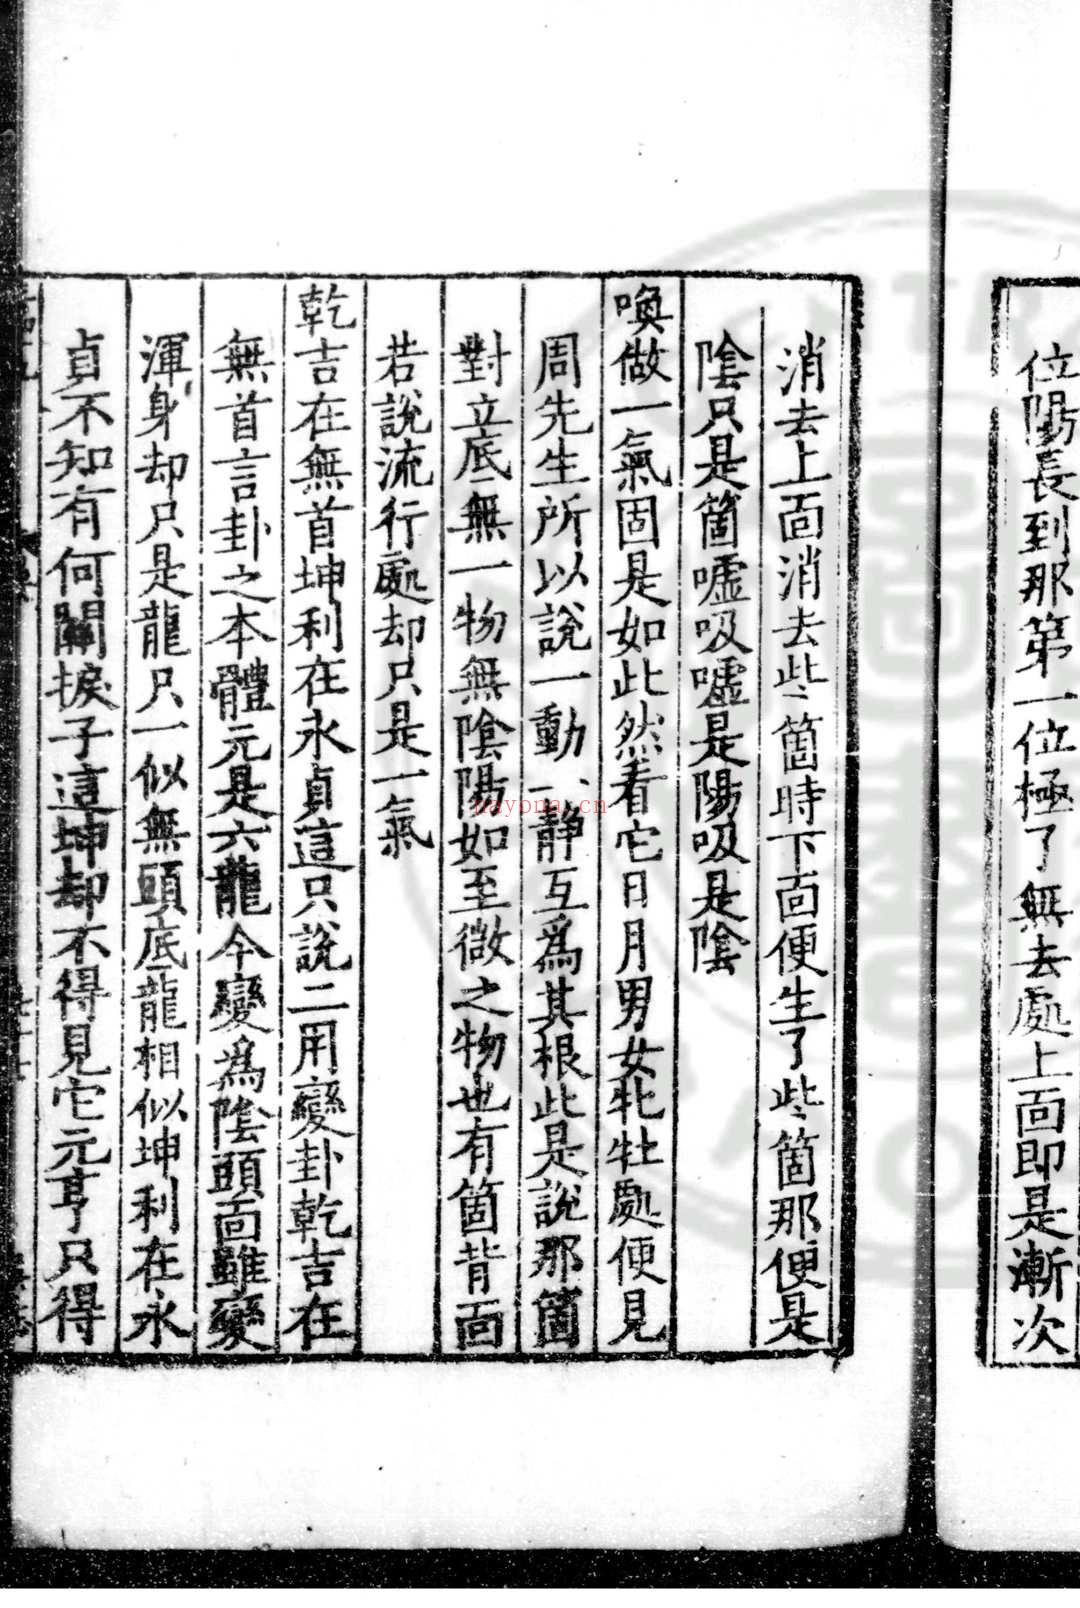 位陽長到那第一位極了無去處上面即是漸次
消去上面消去些箇時下面便生了些箇那便是
陰只是箇嘘吸嘘是陽吸是陰
喚做一氣固是如此然看它日月男女牝牡處便見
周先生所以說一動一靜互為其根此是說那箇
對立底無一物無陰陽如至微之物也有箇背面
若說流行處却只是一氣
乾吉在無首坤利在永貞這只說二用變卦乾吉在
無首言卦之本體元是六龍今變為陰頭面雖變
渾身却只是龍只一似無頭底龍相似坤利在永
貞不知有何關捩子這坤却不得見它元亨只得
nayona.cn